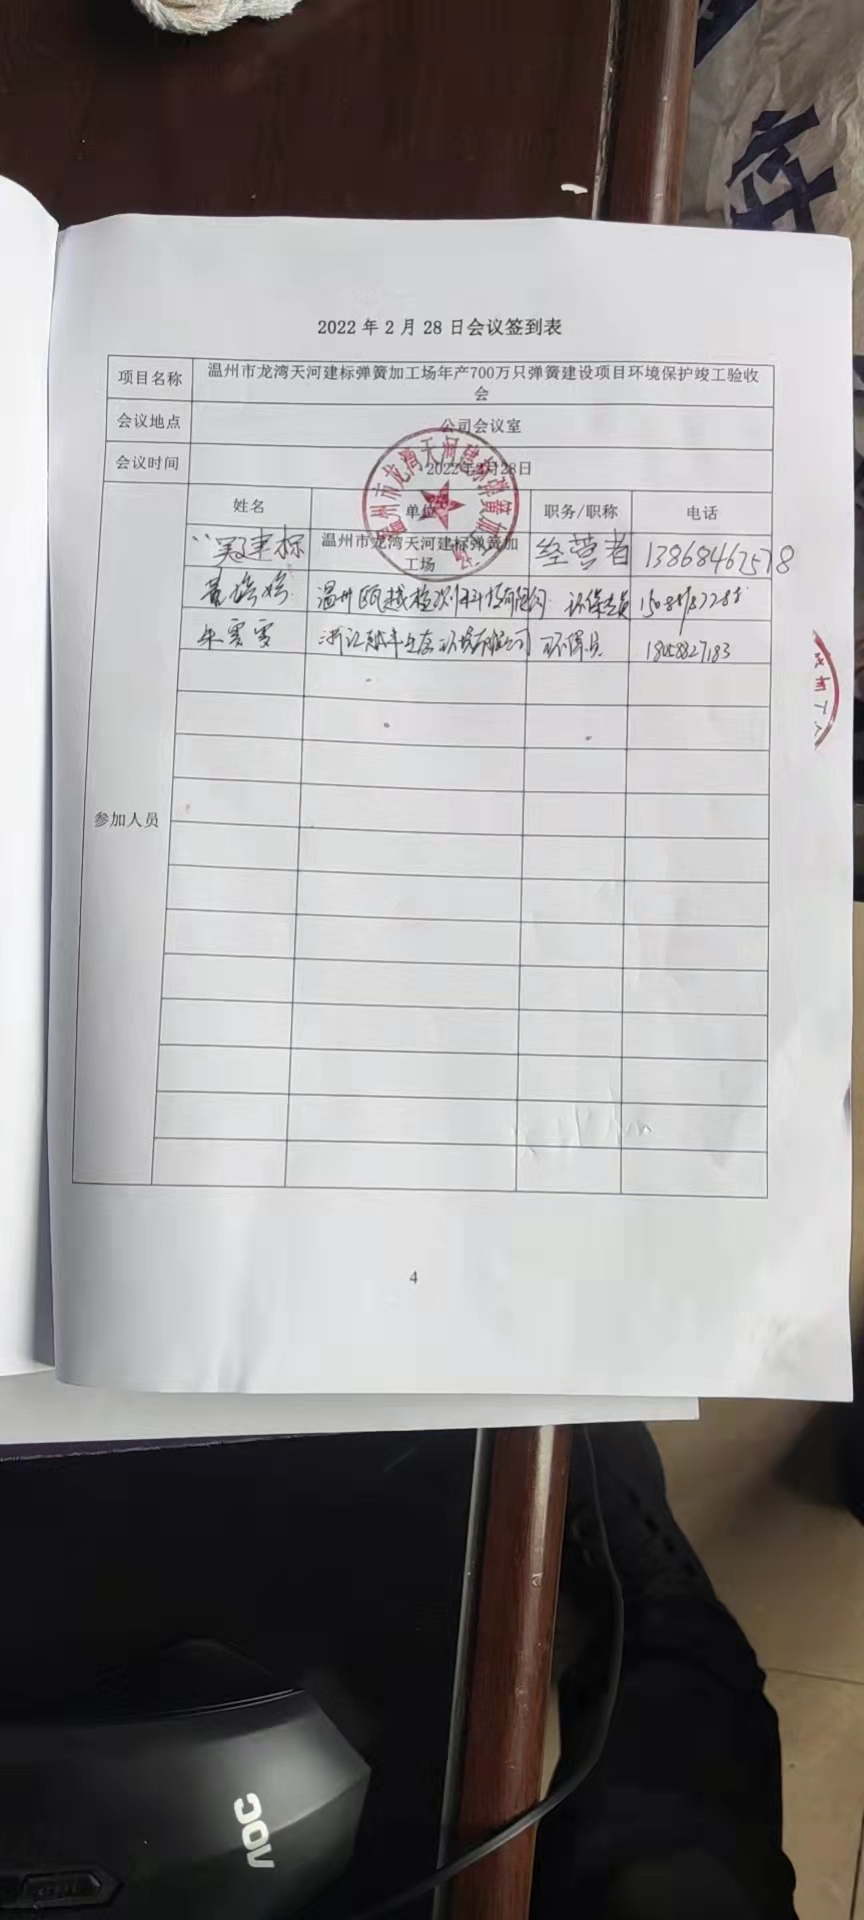 2022 年 2 月 28 日会议签到表
项目名称 温州市龙湾天河建标弹簧加工场年产700万只弹簧建设项目环境保护竣工验收
会
会议地点 公司会议室
会议时间 2022年2月28日
姓名 单位 职务/职称 电话
吴建标 温州市龙湾天河建标弹簧加 经营者
工场
温州瓯越检测科技有限公司 环保专员
朱雯雯 环保员
参加人员
温州市龙湾天河建标弹簧加工场
4
AOC